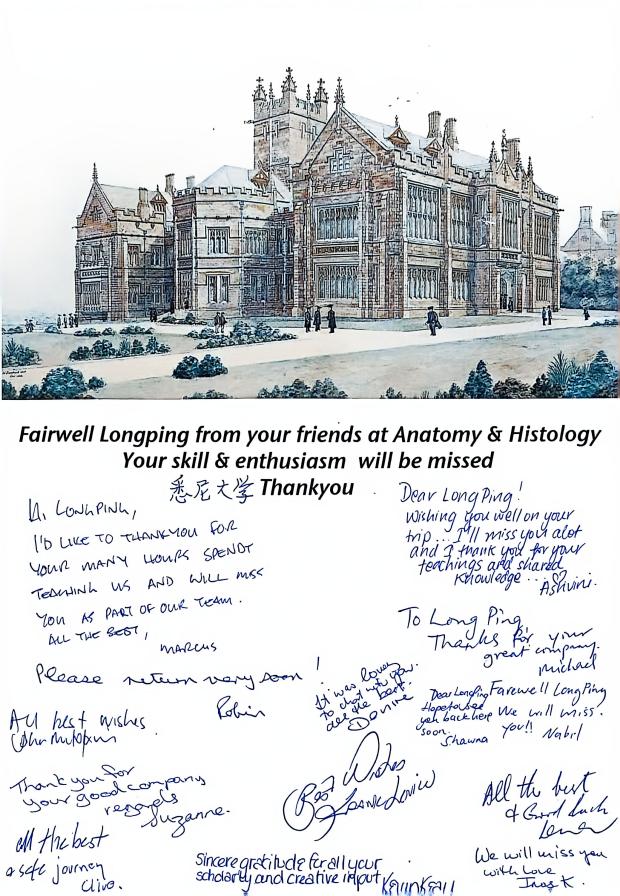 Fairwell Longping from your friends at Anatomy & Histology
Your skill & enthusiasm will be missed
悉尼大学 Thankyou
Hi LONGPING,
I'D LIKE TO THANKYOU FOR
YOUR MANY HOURS SPENDT
TEACHING US AND WILL MISS
YOU AS PART OF OUR TEAM.
ALL THE BEST,
MARCUS
Dear LongPing!
Wishing you well on your
trip... I'll miss you alot
and I thank you for your
teachings and shared
knowledge...
Ashvini.
To Long Ping
Thanks for your
great company.
Michael
Please return very soon!
Robin
It was lovely
to chat with you.
all the best.
Dear LongPing
Hope to see
you back here
soon.
Shawna
Farewell LongPing
We will miss
you!!
Nabil
All best wishes
Thank you for
your good company
regards
Suzanne.
Best Wishes
All the best
& Good luck
all the best
a safe journey
Clive.
Sincere gratitude for all your
scholarly and creative input
We will miss you
with Love